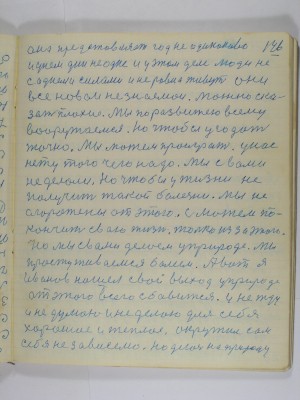 она предоставляет год не одинаково 146
и у нем дни не одне и у этом деле люди не
с одними силами и не ровно живут они
все новаи незнакомаи. Можно ска-
зат плохие. Мы по развитею всему
вооружаемся. Но чтобы угодат
точно. Мы можем проиграт. у нас
нету того чего надо. Мы с вами
не делали. Но чтобы у жизни не
получит такой болезни. Мы не
огорожены от этого. И можем по-
кончит свою жизн, толко из за этого.
Но мы с вами делаем у природе. Мы
простуживаемся болеем. А вот я
Иванов нашел свой выход у природе
от этого всего сбавится. и не жду
и не думаю и не делаю для себя
хорошое и теплое. окружил сам
себя независемо. Но делаю на природу